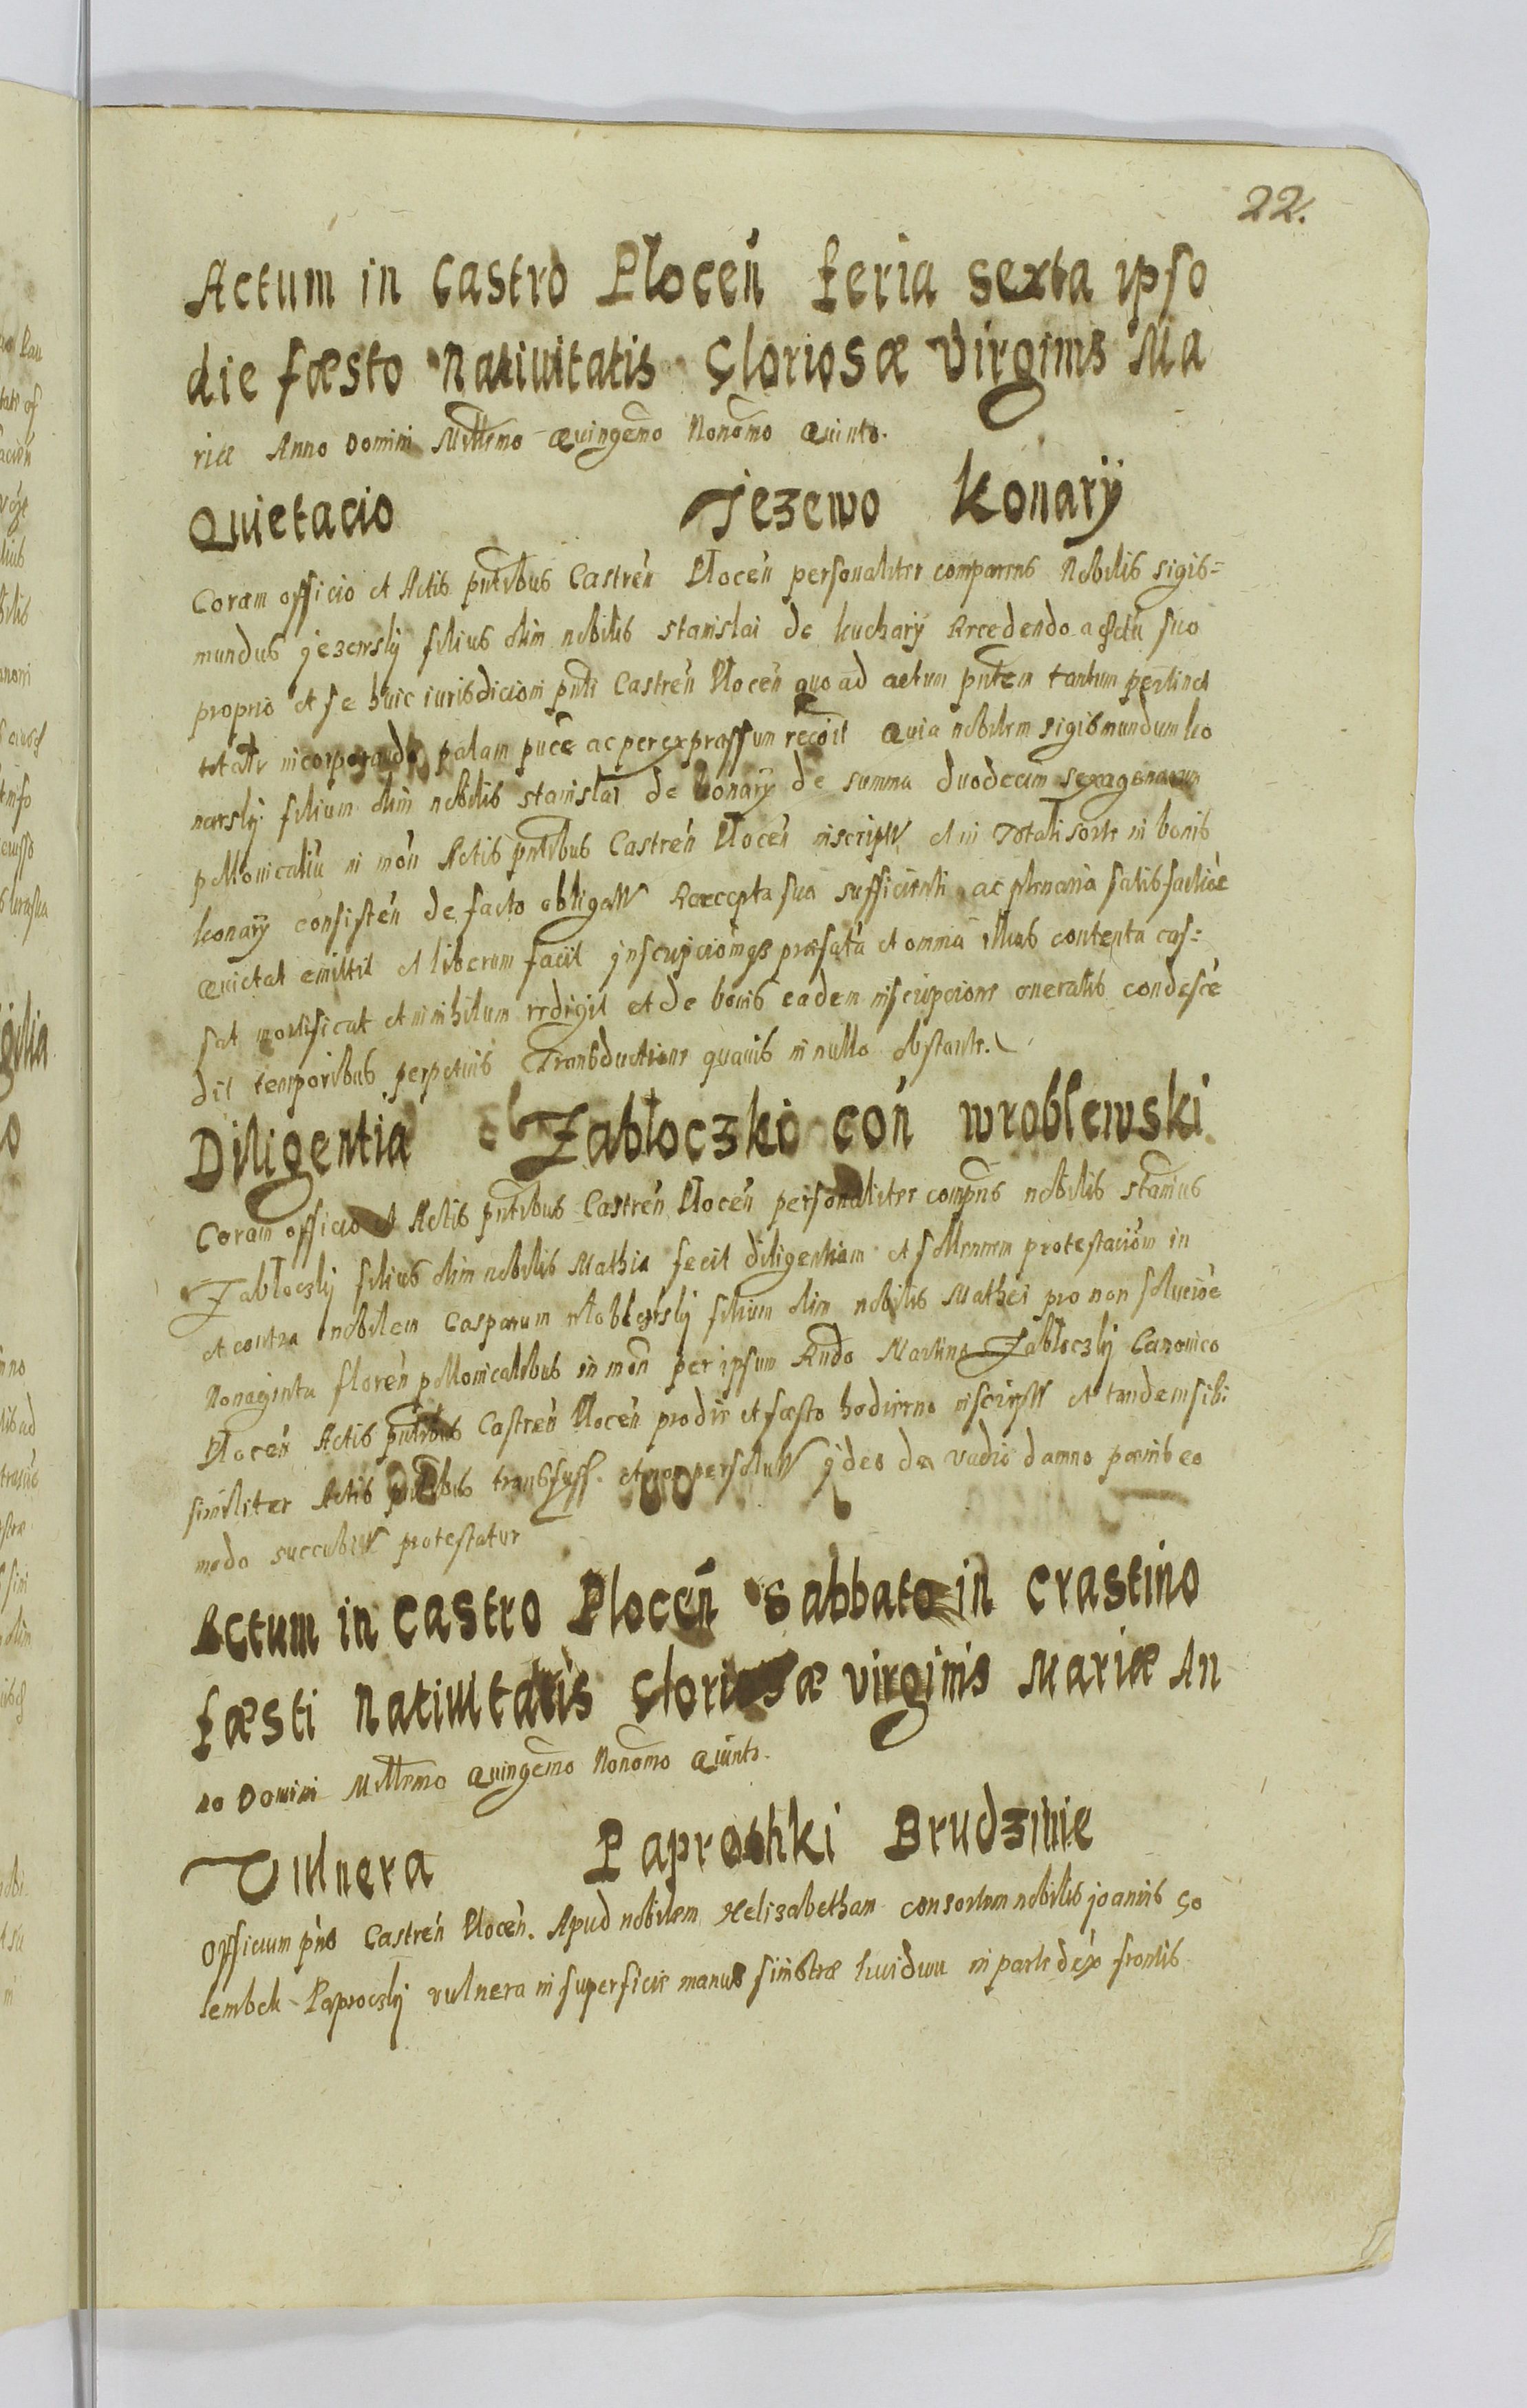 22.
Actum in Castro Plocen̄ feria sexta ipso
die fæsto Natiuitatis Gloriosæ Virginis Ma
riæ Anno Domini Millēmo Quingēmo Nonōmo Quinto.
Quietacio Jezewo Konarÿ
Coram officio et Actis pn̄tibus Castren̄ Plocen̄ personaliter comparens Nobilis sigis=
mundus jezewskÿ filius olim nobilis stanislai de kucharÿ Recedendo a districtu suo
proprio et se huic iurisdicioni pn̄ti Castren̄ Plocen̄ quo ad actum pn̄tem tantum pertinet
totalr̄ incorporando palam puc̄e ac per expræssum recōit Quia nobilem sigismundum ko
narskÿ filium olim nobilis stanislai de konarÿ de summa duodecim sexagenarum
pollonicaliū in mon̄ Actis pn̄tibus Castren̄ Plocen̄ inscript et in Totali sorte in bonis
konarÿ consisten̄ de facto obligatt Accepta sua sufficienti ac plenaria satisfactiōe
Quietat emittit et liberum facit jnscripciōnemqꝫ præfatā et omnia illius contenta cas=
sat mortificat et in nihilum redigit et de bonis eadem inscripcione oneratis condescē
dit temporibus perpetuis Transductione quauis in nullo obstante.
Diligentia Zabłoczki con̄ wroblewski
Coram officio et Actis pn̄tibus Castren̄ Plocen̄ personaliter compn̄s nobilis stanīus
Zabłoczkÿ filius olim nobilis Mathia fecit diligentiam et sollennem protestaciōm in
et contra nobilem Casparum wroblewskÿ filium olim nobilis Mathei pro non soluciōe
Nonaginta floren̄ pollonicalibus in mon̄ per ipsum Rndo Martino Zabłoczkÿ Canonico
Plocen̄ Actis pn̄tibus Castren̄ Plocen̄ pro die et fæsto hodierno inscript et tandem sibi
similiter Actis pn̄tibus transfuss. et non persolutt jdeo de vadio damno pœnis eo
modo succubitt protestatur
Actum in Castro Plocen̄ Sabbato in crastino
fæsti Natiuitatis Gloriosæ virginis Mariæ An
no Domini Millēmo Quingēmo Nonōmo Quinto.
Vulnera Paproczki Brudzinie
Officium pn̄s Castren̄ Plocen̄. Apud nobilem Helizabetham consortem nobilis joannis Go
lembek Paproczkÿ vulnera in superficie manus sinistræ liuidum in parte dex̄ frontis